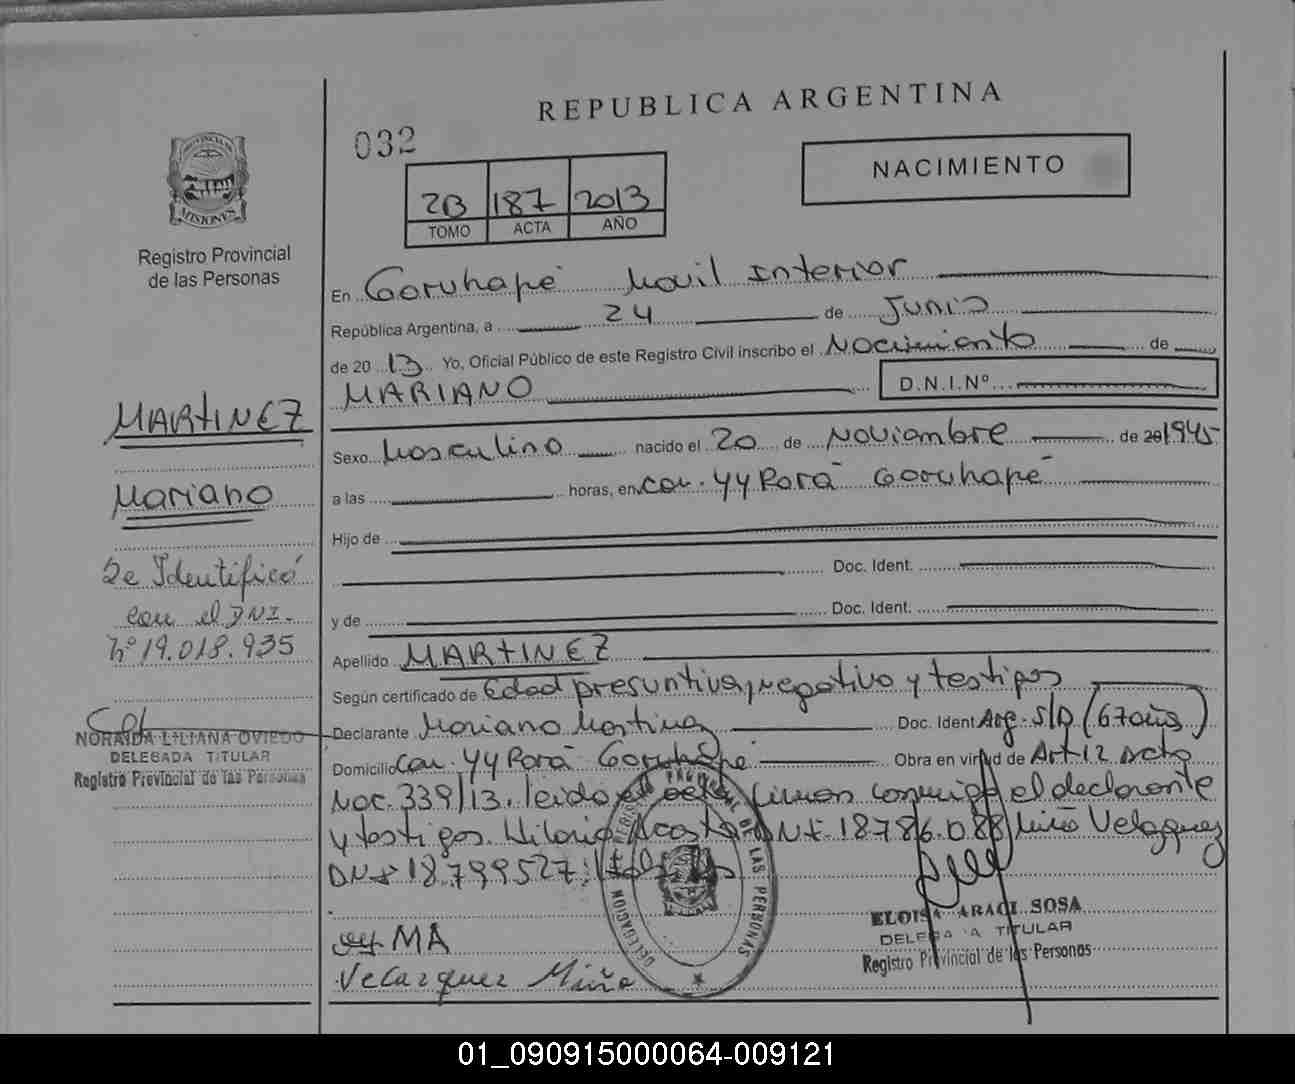 REPUBLICA ARGENTINA
032
NACIMIENTO
2B 187 2013
TOMO ACTA AÑO
PROVINCIA DE MISIONES
Registro Provincial
de las Personas
En Garuhapé Movil Interior
República Argentina, a 24 de Junio
de 20 13 Yo, Oficial Público de este Registro Civil inscribo el Nacimiento de
MARIANO D.N.I.Nº
Sexo Masculino nacido el 20 de Noviembre de 20 1945
a las horas, en Cam. YY Pora Garuhapé
Hijo de
Doc. Ident.
y de Doc. Ident.
Apellido MARTINEZ
Según certificado de Edad presuntiva, negativo y testigos
Declarante Mariano Martinez Doc. Ident Arg. S/D (67 años)
Domicilio Cam. YY Pora Garuhapé Obra en virtud de Art 12 Acto
Nac. 339/13. leido el acta firman conmigo el declarante
y testigos. Hilario Acosta DNI. 18.786.088/Miño Velazquez
DNI 18.799527.
MA
Velazquez Miño
DELEGACION
REGISTRO PROVINCIAL DE LAS PERSONAS
ELOISA ARACI SOSA
DELEGADA TITULAR
Registro Provincial de las Personas
MARTINEZ
Mariano
Se Identificó
con el DNI.
Nº 19.018.935
NORAIDA LILIANA OVIEDO
DELEGADA TITULAR
Registro Provincial de las Personas
01_090915000064-009121